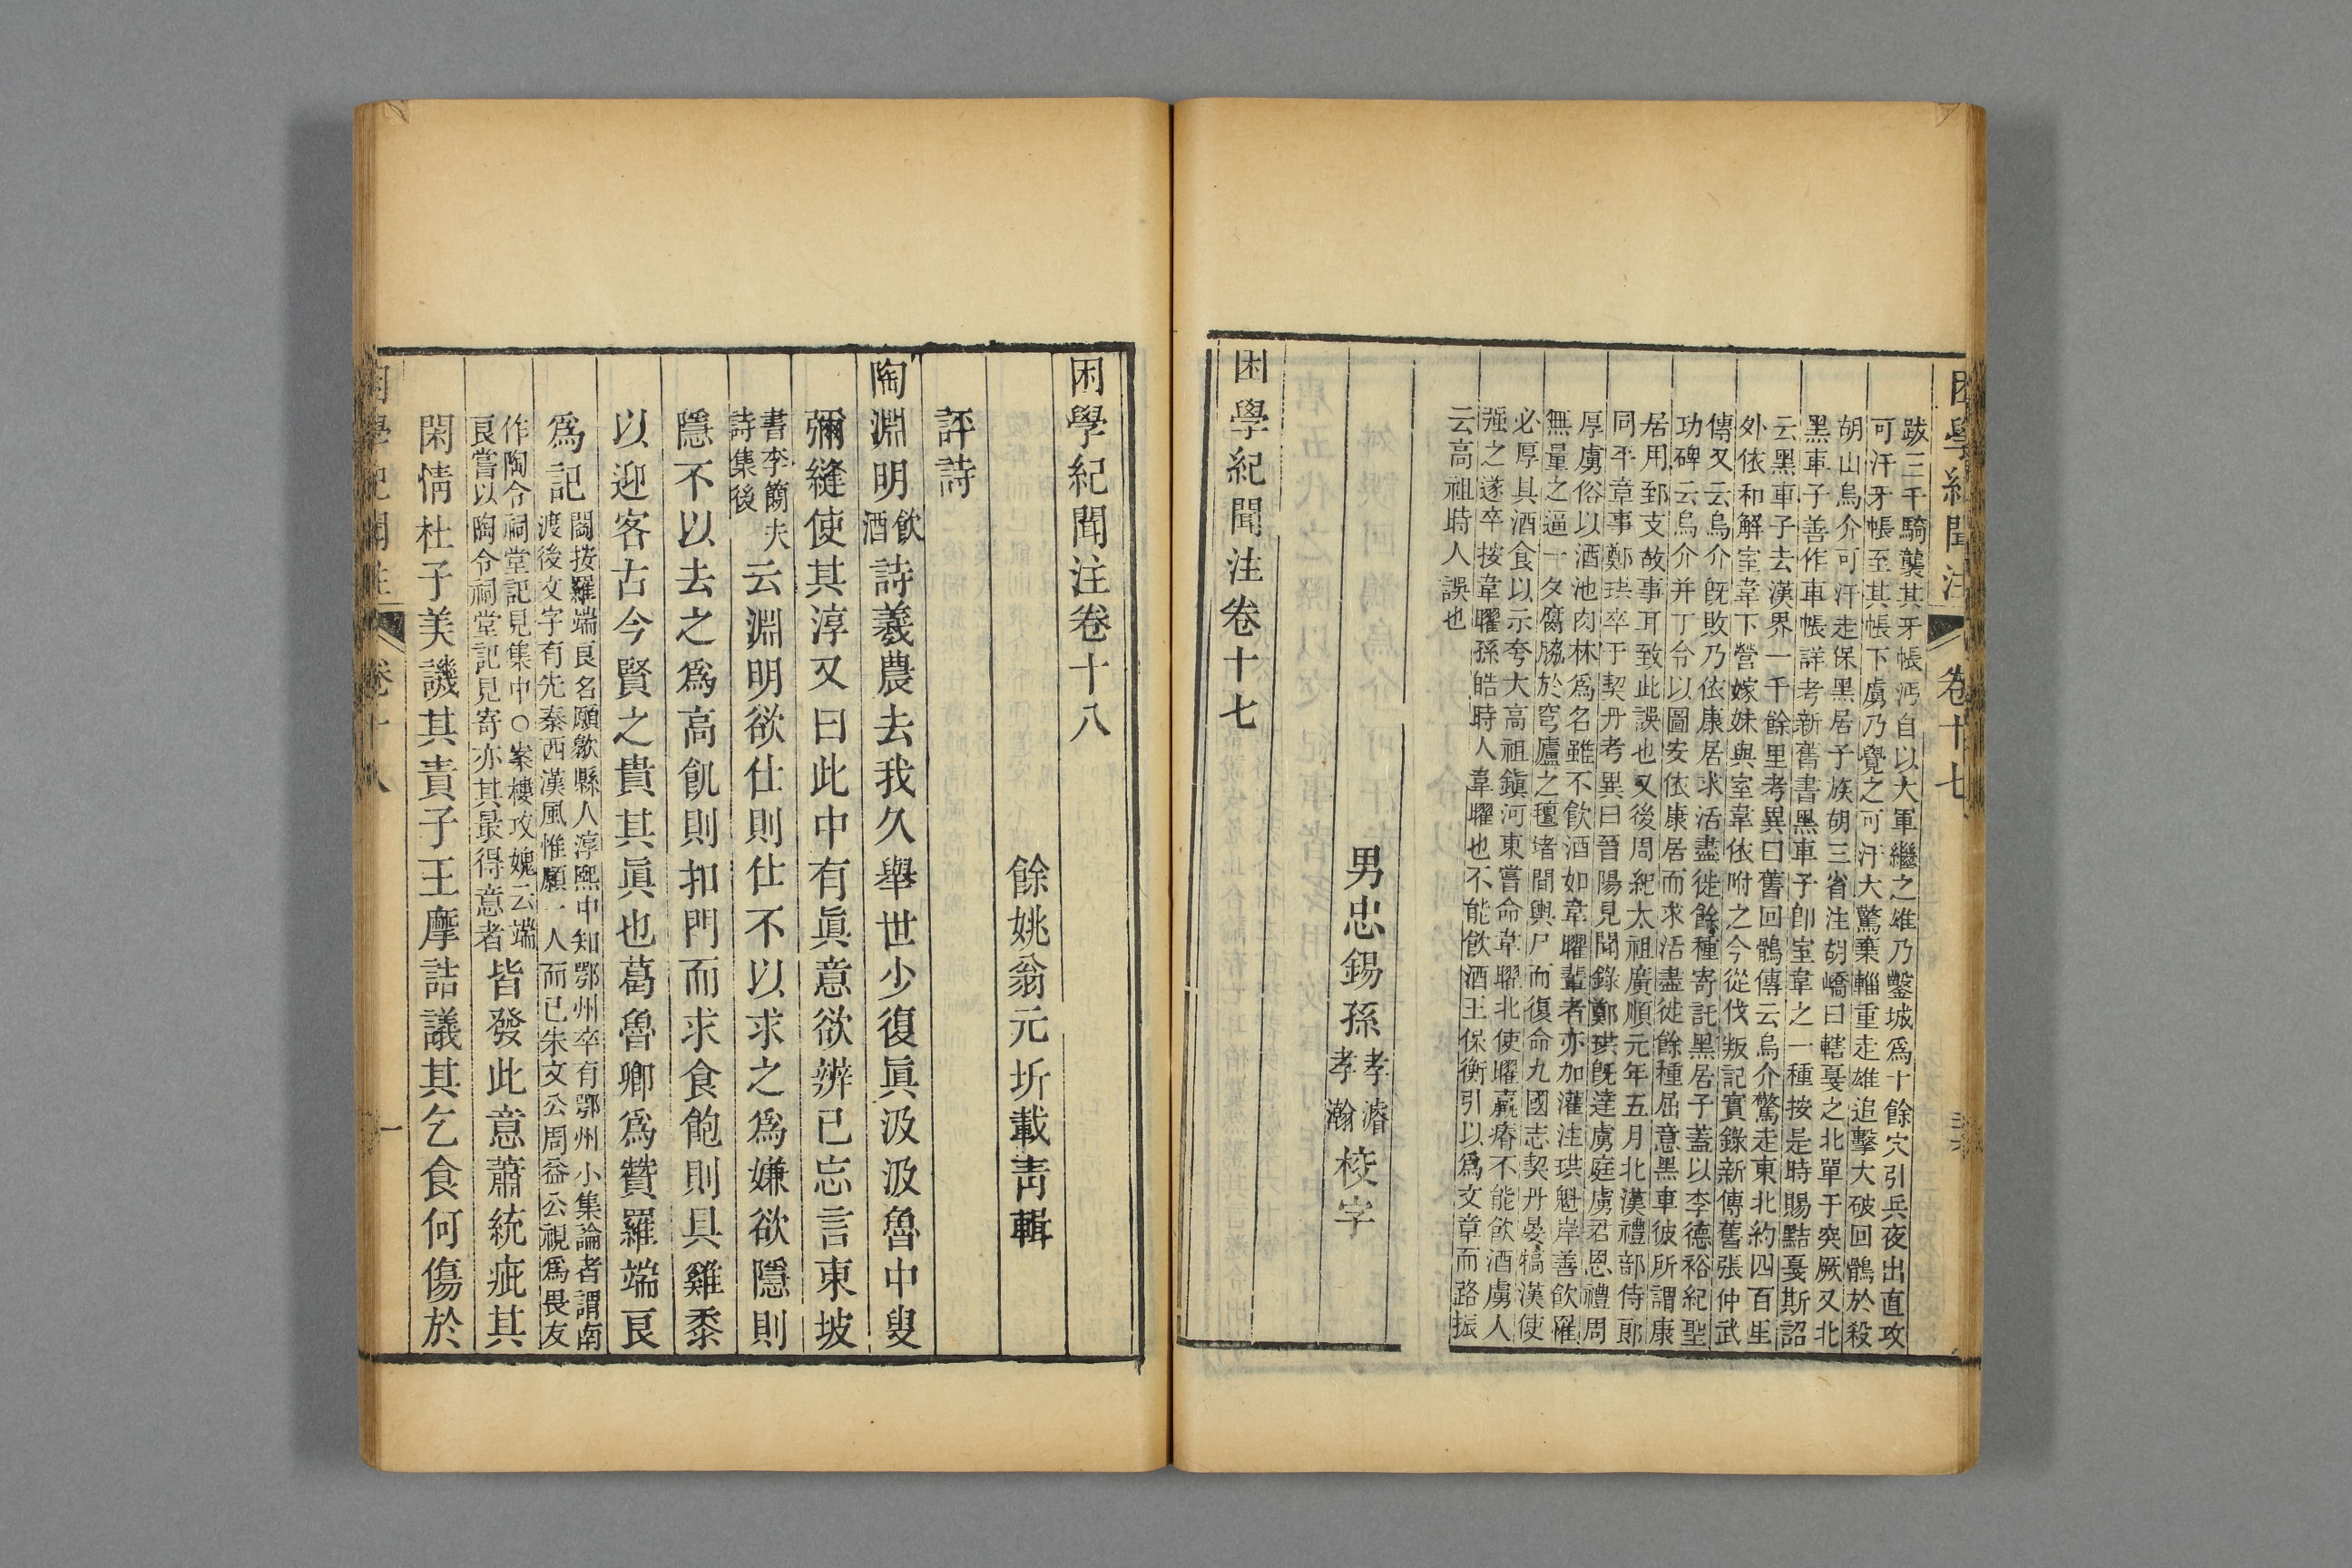 困學紀聞注
卷十七
跋三千騎襲其牙帳沔自以大軍繼之雄乃鑿城爲十餘穴引兵夜出直攻
可汗牙帳至其帳下虜乃覺之可汗大驚棄輜重走雄追擊大破回鶻於殺
胡山烏介可汗走保黑居子族胡三省注胡嶠曰轄戛之北單于突厥又北
黑車子善作車帳詳考新舊書黑車子卽室韋之一種按是時賜黠戛斯詔
云黑車子去漢界一千餘里考異曰舊回鶻傳云烏介驚走東北約四百里
外依和解室韋下營嫁妹與室韋依附之今從伐叛記實錄新傳舊張仲武
傳又云烏介既敗乃依康居求活盡徙餘種寄託黑居子蓋以李德裕紀聖
功碑云烏介并丁令以圖安依康居而求活盡徙餘種屈意黑車彼所謂康
居用郅支故事耳致此誤也又後周紀太祖廣順元年五月北漢禮部侍郎
同平章事鄭珙卒于契丹考異曰晉陽見聞錄鄭珙旣達虜庭虜君恩禮周
厚虜俗以酒池肉林爲名雖不飲酒如韋曜輩者亦加灌注珙魁岸善飲罹
無量之逼一夕腐脇於穹廬之氊堵間輿尸而復命九國志契丹宴犒漢使
必厚具酒食以示夸大高祖鎭河東嘗命韋曜北使曜羸瘠不能飲酒虜人
强之遂卒按韋曜孫皓時人韋曜也不能飲酒王保衡引以爲文章而路振
云高祖時人誤也
男忠錫孫孝濬孝瀚校字
困學紀聞注卷十七
困學紀聞注卷十八
餘姚翁元圻載青輯
評詩
陶淵明飲酒詩羲農去我久舉世少復眞汲汲魯中叟
彌縫使其淳又曰此中有眞意欲辨已忘言東坡
書李簡夫詩集後云淵明欲仕則仕不以求之爲嫌欲隱則
隱不以去之爲高飢則扣門而求食飽則具雞黍
以迎客古今賢之貴其眞也葛魯卿爲贊羅端良
爲記閻按羅端良名願歙縣人淳熙中知鄂州卒有鄂州小集論者謂南
渡後文字有先秦西漢風惟願一人而已朱文公周益公視爲畏友
作陶令祠堂記見集中○案樓攻媿云端
良嘗以陶令祠堂記見寄亦其最得意者皆發此意蕭統疵其
閑情杜子美譏其責子王摩詰議其乞食何傷於
困學紀聞注
卷十八
一